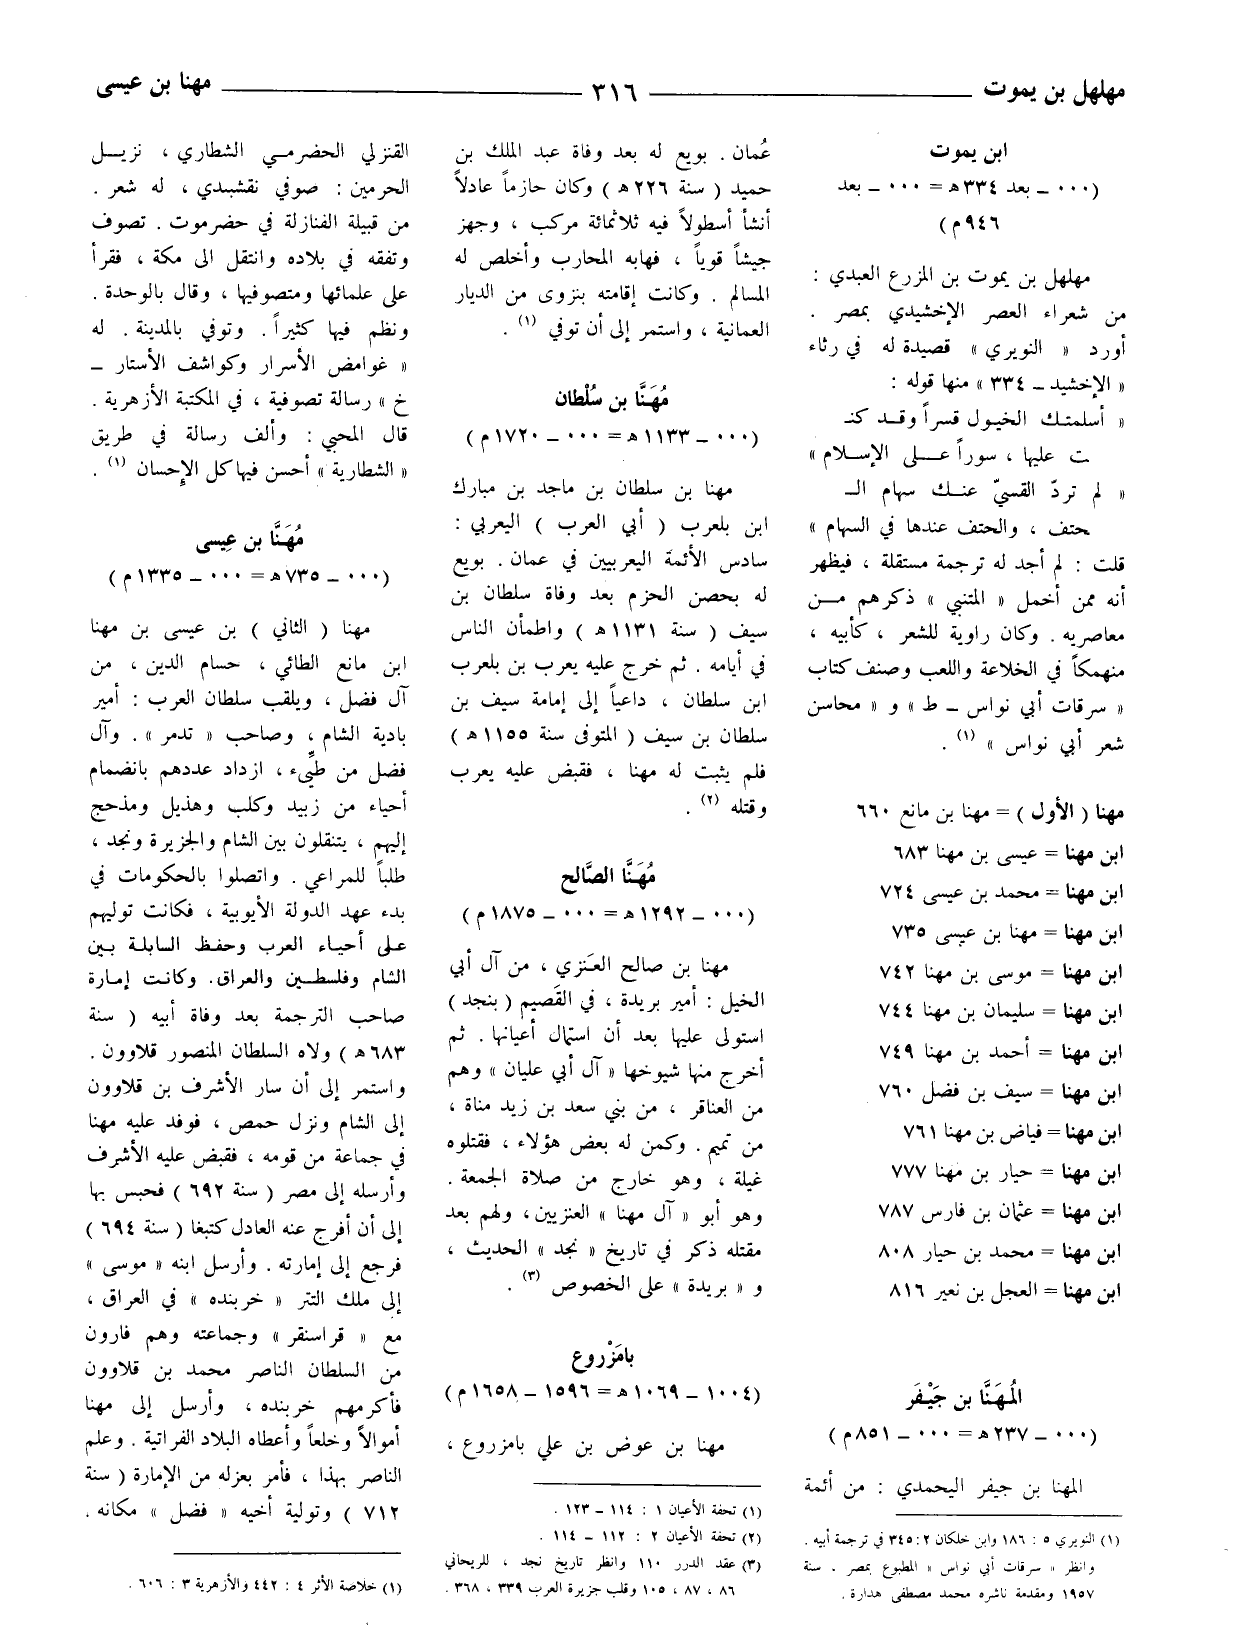 مهلهل بن يموت
٣١٦
مهنا بن عيسى
ابن يموت
(٠٠٠ ـ بعد ٣٣٤ هـ = ٠٠٠ ـ بعد
٩٤٦ م)
مهلهل بن يموت بن المزرع العبدي :
من شعراء العصر الإخشيدي بمصر .
أورد « النويري » قصيدة له في رثاء
« الإخشيد ـ ٣٣٤ » منها قوله :
« أسلمتك الخيول قسراً وقد كنـ
ت عليها ، سوراً على الإسلام »
« لم تردّ القسيّ عنك سهام الـ
حتف ، والحتف عندها في السهام »
قلت : لم أجد له ترجمة مستقلة ، فيظهر
أنه ممن أخمل « المتنبي » ذكرهم من
معاصريه . وكان راوية للشعر ، كأبيه ،
منهمكاً في الخلاعة واللعب وصنف كتاب
« سرقات أبي نواس ـ ط » و « محاسن
شعر أبي نواس » (١) .
مهنا ( الأول ) = مهنا بن مانع ٦٦٠
ابن مهنا = عيسى بن مهنا ٦٨٣
ابن مهنا = محمد بن عيسى ٧٢٤
ابن مهنا = مهنا بن عيسى ٧٣٥
ابن مهنا = موسى بن مهنا ٧٤٢
ابن مهنا = سليمان بن مهنا ٧٤٤
ابن مهنا = أحمد بن مهنا ٧٤٩
ابن مهنا = سيف بن فضل ٧٦٠
ابن مهنا = فياض بن مهنا ٧٦١
ابن مهنا = حيار بن مهنا ٧٧٧
ابن مهنا = عثمان بن فارس ٧٨٧
ابن مهنا = محمد بن حيار ٨٠٨
ابن مهنا = العجل بن نعير ٨١٦
المُهَنَّا بن جَيْفَر
(٠٠٠ ـ ٢٣٧ هـ = ٠٠٠ ـ ٨٥١ م)
المهنا بن جيفر اليحمدي : من أئمة
(١) النويري ٥ : ١٨٦ وابن خلكان ٢ : ٣٤٥ في ترجمة أبيه .
وانظر « سرقات أبي نواس » المطبوع بمصر . سنة
١٩٥٧ ومقدمة ناشره محمد مصطفى هدارة .
عُمان . بويع له بعد وفاة عبد الملك بن
حميد ( سنة ٢٢٦ هـ ) وكان حازماً عادلاً
أنشأ أسطولاً فيه ثلاثمائة مركب ، وجهز
جيشاً قوياً ، فهابه المحارب وأخلص له
المسالم . وكانت إقامته بنزوى من الديار
العمانية ، واستمر إلى أن توفي (١) .
مُهَنَّا بن سُلْطان
(٠٠٠ ـ ١١٣٣ هـ = ٠٠٠ ـ ١٧٢٠ م)
مهنا بن سلطان بن ماجد بن مبارك
ابن بلعرب ( أبي العرب ) اليعربي :
سادس الأئمة اليعربيين في عمان . بويع
له بحصن الحزم بعد وفاة سلطان بن
سيف ( سنة ١١٣١ هـ ) واطمأن الناس
في أيامه . ثم خرج عليه يعرب بن بلعرب
ابن سلطان ، داعياً إلى إمامة سيف بن
سلطان بن سيف ( المتوفى سنة ١١٥٥ هـ )
فلم يثبت له مهنا ، فقبض عليه يعرب
وقتله (٢) .
مُهَنَّا الصَّالح
(٠٠٠ ـ ١٢٩٢ هـ = ٠٠٠ ـ ١٨٧٥ م)
مهنا بن صالح العَنزي ، من آل أبي
الخيل : أمير بريدة ، في القَصيم ( بنجد )
استولى عليها بعد أن استمال أعيانها . ثم
أخرج منها شيوخها « آل أبي عليان » وهم
من العناقر ، من بني سعد بن زيد مناة ،
من تميم . وكمن له بعض هؤلاء ، فقتلوه
غيلة ، وهو خارج من صلاة الجمعة .
وهو أبو « آل مهنا » العنزيين ، ولهم بعد
مقتله ذكر في تاريخ « نجد » الحديث ،
و « بريدة » على الخصوص (٣) .
بامَزْروع
(١٠٠٤ ـ ١٠٦٩ هـ = ١٥٩٦ ـ ١٦٥٨ م)
مهنا بن عوض بن علي بامزروع ،
(١) تحفة الأعيان ١ : ١١٤ ـ ١٢٣ .
(٢) تحفة الأعيان ٢ : ١١٢ ـ ١١٤ .
(٣) عقد الدرر ١١٠ وانظر تاريخ نجد ، للريحاني
٨٦ ، ٨٧ ، ١٠٥ وقلب جزيرة العرب ٣٣٩ ، ٣٦٨ .
القنزلي الحضرمي الشطاري ، نزيل
الحرمين : صوفي نقشبندي ، له شعر .
من قبيلة الفنازلة في حضرموت . تصوف
وتفقه في بلاده وانتقل الى مكة ، فقرأ
على علمائها ومتصوفيها ، وقال بالوحدة .
ونظم فيها كثيراً . وتوفي بالمدينة . له
« غوامض الأسرار وكواشف الأستار ـ
خ » رسالة تصوفية ، في المكتبة الأزهرية .
قال المحبي : وألف رسالة في طريق
« الشطارية » أحسن فيها كل الإحسان (١) .
مُهَنَّا بن عِيسى
(٠٠٠ ـ ٧٣٥ هـ = ٠٠٠ ـ ١٣٣٥ م)
مهنا ( الثاني ) بن عيسى بن مهنا
ابن مانع الطائي ، حسام الدين ، من
آل فضل ، ويلقب سلطان العرب : أمير
بادية الشام ، وصاحب « تدمر » . وآل
فضل من طيِّء ، ازداد عددهم بانضمام
أحياء من زبيد وكلب وهذيل ومذحج
إليهم ، يتنقلون بين الشام والجزيرة ونجد ،
طلباً للمراعي . واتصلوا بالحكومات في
بدء عهد الدولة الأيوبية ، فكانت توليهم
على أحياء العرب وحفظ السابلة بين
الشام وفلسطين والعراق . وكانت إمارة
صاحب الترجمة بعد وفاة أبيه ( سنة
٦٨٣ هـ ) ولاه السلطان المنصور قلاوون .
واستمر إلى أن سار الأشرف بن قلاوون
إلى الشام ونزل حمص ، فوفد عليه مهنا
في جماعة من قومه ، فقبض عليه الأشرف
وأرسله إلى مصر ( سنة ٦٩٢ ) فحبس بها
إلى أن أفرج عنه العادل كتبغا ( سنة ٦٩٤ )
فرجع إلى إمارته . وأرسل ابنه « موسى »
إلى ملك التتر « خربنده » في العراق ،
مع « قراسنقر » وجماعته وهم فارون
من السلطان الناصر محمد بن قلاوون
فأكرمهم خربنده ، وأرسل إلى مهنا
أموالاً وخلعاً وأعطاه البلاد الفراتية . وعلم
الناصر بهذا ، فأمر بعزله من الإمارة ( سنة
٧١٢ ) وتولية أخيه « فضل » مكانه .
(١) خلاصة الأثر ٤ : ٤٤٢ والأزهرية ٣ : ٦٠٦ .